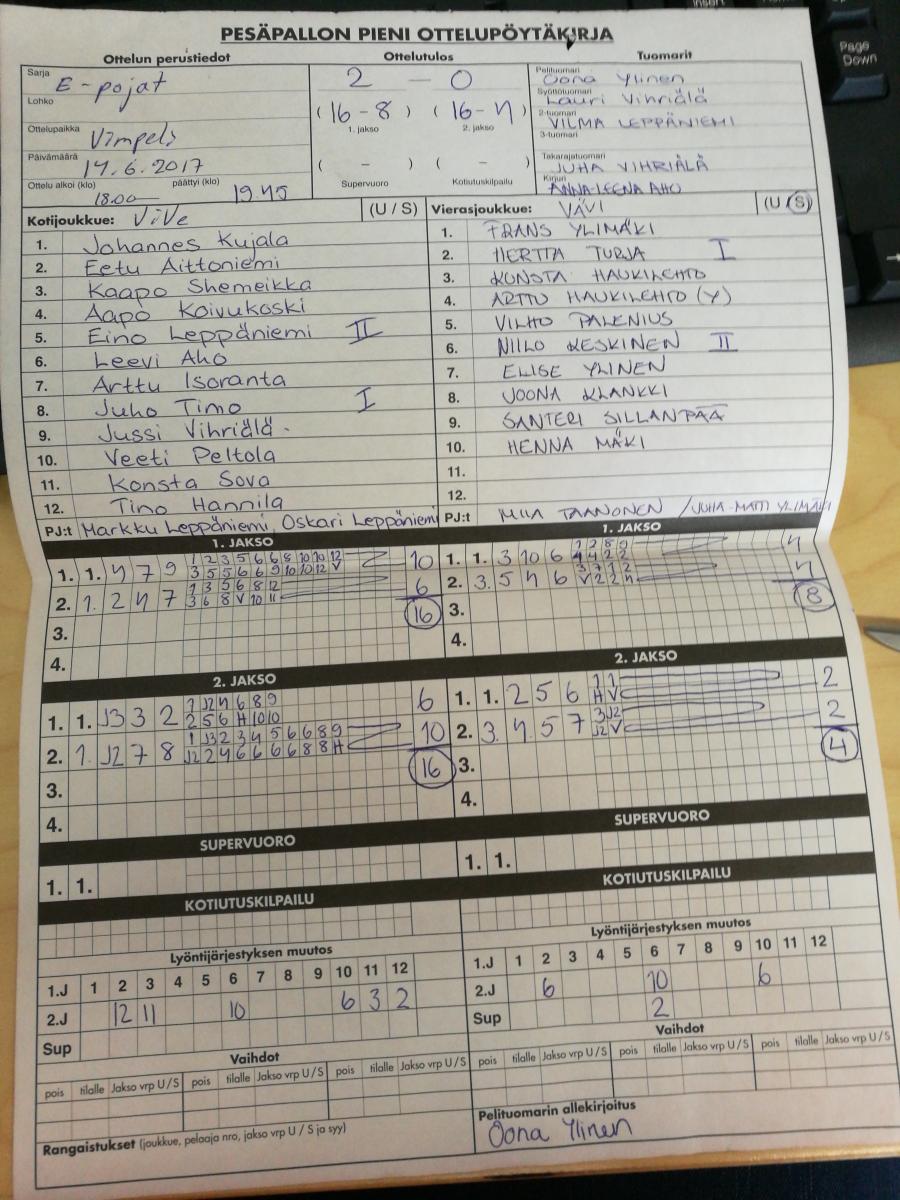 PESÄPALLON PIENI OTTELUPÖYTÄKIRJA
Ottelun perustiedot
Sarja E-pojat
Lohko
Ottelupaikka Vimpeli
Päivämäärä 14.6.2017
Ottelu alkoi (klo) päättyi (klo)
18.00 19.45
Ottelutulos
2 – 0
(16-8) (16-4)
1. jakso 2. jakso
( – ) ( – )
Supervuoro Kotiutuskilpailu
Tuomarit
Pelituomari Oona Ylinen
Syöttötuomari Lauri Vihriälä
2-tuomari VILMA LEPPÄNIEMI
3-tuomari
Takarajatuomari JUHA VIHRIÄLÄ
Kirjuri ANNA-LEENA AHO
Kotijoukkue: ViVe (U / S)
1. Johannes Kujala
2. Eetu Aittoniemi
3. Kaapo Shemeikka
4. Aapo Koivukoski
5. Eino Leppäniemi II
6. Leevi Aho
7. Arttu Isoranta
8. Juho Timo I
9. Jussi Vihriälä
10. Veeti Peltola
11. Konsta Sova
12. Tino Hannila
PJ:t Markku Leppäniemi, Oskari Leppäniemi
Vierasjoukkue: VÄVI (U / S)
1. FRANS YLIMÄKI
2. HERTTA TURJA I
3. KONSTA HAUKILEHTO
4. ARTTU HAUKILEHTO (Y)
5. VILHO PALENIUS
6. NIILO KESKINEN II
7. ELISE YLINEN
8. JOONA KLANKKI
9. SANTERI SILLANPÄÄ
10. HENNA MÄKI
11.
12.
PJ:t MIIA TAANONEN / JUHA-MATTI YLIMÄKI
1. JAKSO
1. 1. 4 7 9 1 2 3 5 6 6 8 10 10 12 10
3 5 5 6 6 9 10 10 12 V
2. 1. 2 4 7 1 3 5 6 8 12 6
3 6 8 V 10 11
16
3.
4.
1. JAKSO
1. 1. 3 10 6 1 2 8 9 4
4 4 2 2
2. 3. 5 4 6 3 7 1 2 4
V 2 2 4
8
3.
4.
2. JAKSO
1. 1. J3 3 2 1 J2 4 6 8 9 6
2 5 6 H 10 10
2. 1. J2 7 8 1 J3 2 3 4 5 6 6 8 9 10
J2 2 4 6 6 6 6 8 8 H
16
3.
4.
2. JAKSO
1. 1. 2 5 6 1 1 2
H V
2. 3. 4. 5 7 3 J2 2
J2 V
4
3.
4.
SUPERVUORO
1. 1.
SUPERVUORO
1. 1.
KOTIUTUSKILPAILU
KOTIUTUSKILPAILU
Lyöntijärjestyksen muutos
1.J 1 2 3 4 5 6 7 8 9 10 11 12
2.J 12 11 10 6 3 2
Sup
Lyöntijärjestyksen muutos
1.J 1 2 3 4 5 6 7 8 9 10 11 12
2.J 6 10 6
Sup 2
Vaihdot
pois tilalle Jakso vrp U / S pois tilalle Jakso vrp U / S pois tilalle Jakso vrp U / S
Vaihdot
pois tilalle Jakso vrp U / S pois tilalle Jakso vrp U / S
Rangaistukset (joukkue, pelaaja nro, jakso vrp U / S ja syy)
Pelituomarin allekirjoitus
Oona Ylinen
Page
Down